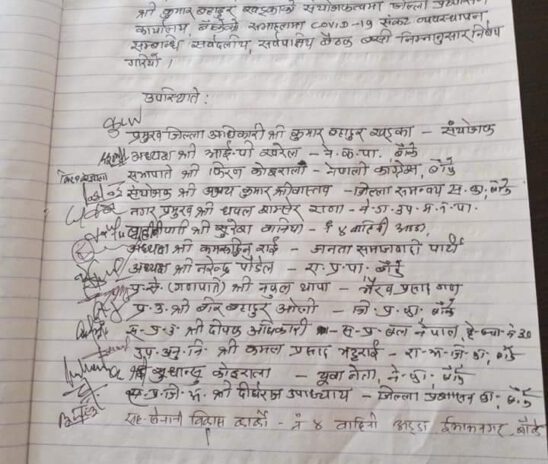 श्री कुमार बहादुर खड्काको संयोजकत्वमा जिल्ला प्रशासन
कार्यालय, बाँकेको सभाहलमा COVID-19 संकट व्यवस्थापन
सम्बन्धि सर्वदलीय, सर्वपक्षिय बैठक बसी निम्नानुसार निर्णय
गरियो ।
उपस्थिति :
प्रमुख जिल्ला अधिकारी श्री कुमार बहादुर खड्का - संयोजक
अध्यक्ष श्री आई.पी खरेल - ने.क.पा. बाँके
सभापति श्री किरण कोइराला - नेपाली काँग्रेस, बाँके
संयोजक श्री अजय कुमार श्रीवास्तव - जिल्ला समन्वय स. का. बाँके
नगर प्रमुख श्री धवल शम्शेर राणा - ने.उ.म.न.पा.
श्री सुरेश - नं ४ बाहिनी अड्डा,
अध्यक्ष श्री राई - जनता समाजवादी पार्टी
अध्यक्ष श्री नरेन्द्र पौडेल - रा.प्र.पा. बाँके
प्र.से. (गणपति) श्री नुवल थापा - भैरव प्रसाद गण
प्र.उ. श्री वीर बहादुर ओली - जि.प्र.का. बाँके
स.प्र.उ श्री दीपक अधिकारी - स.प्र.बल नेपाल,
उप.अनु.नि. श्री कमल प्रसाद भट्टराई - रा.अ.जि.का, बाँके
श्री सुधान्सु कोइराला - युवा नेता, ने.का. बाँके
स.प्र.जि.अ. श्री दीर्घराज उपाध्याय - जिल्ला प्रशासन का. बाँके
सह-सेनानी विकास कार्की - नं ४ बाहिनी अड्डा ईमामनगर, बाँके